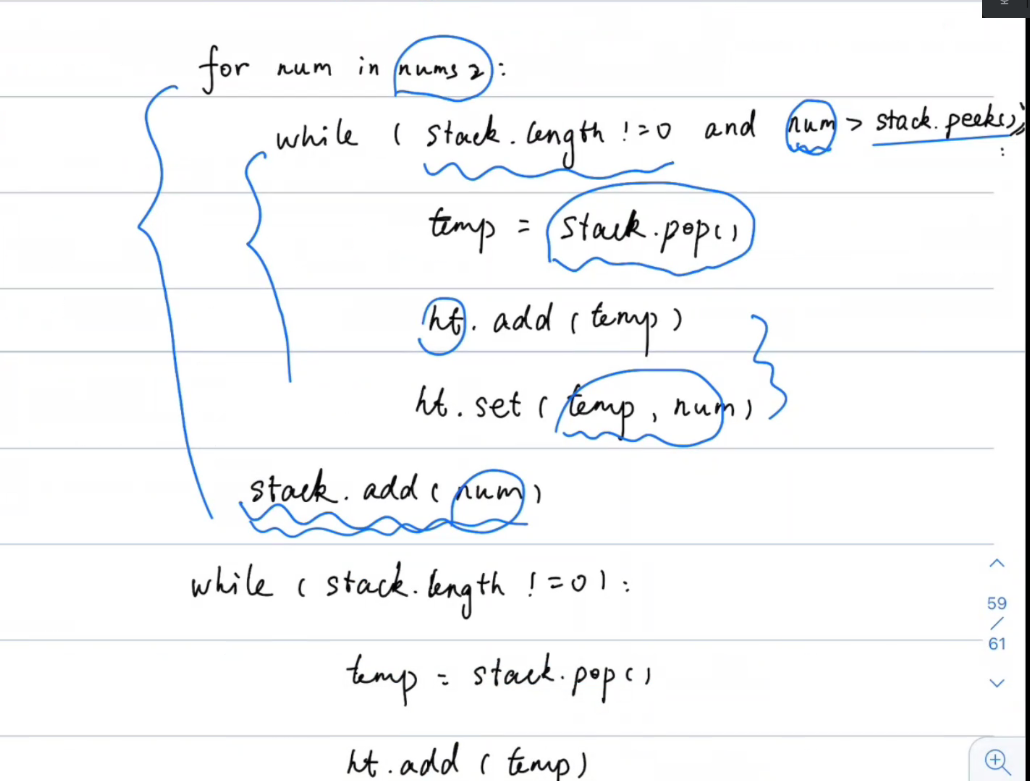 for num in nums2:
while (stack.length != 0 and num > stack.peek()):
temp = stack.pop()
ht.add(temp)
ht.set(temp, num)
stack.add(num)
while (stack.length != 0):
temp = stack.pop()
ht.add(temp)
59
/
61